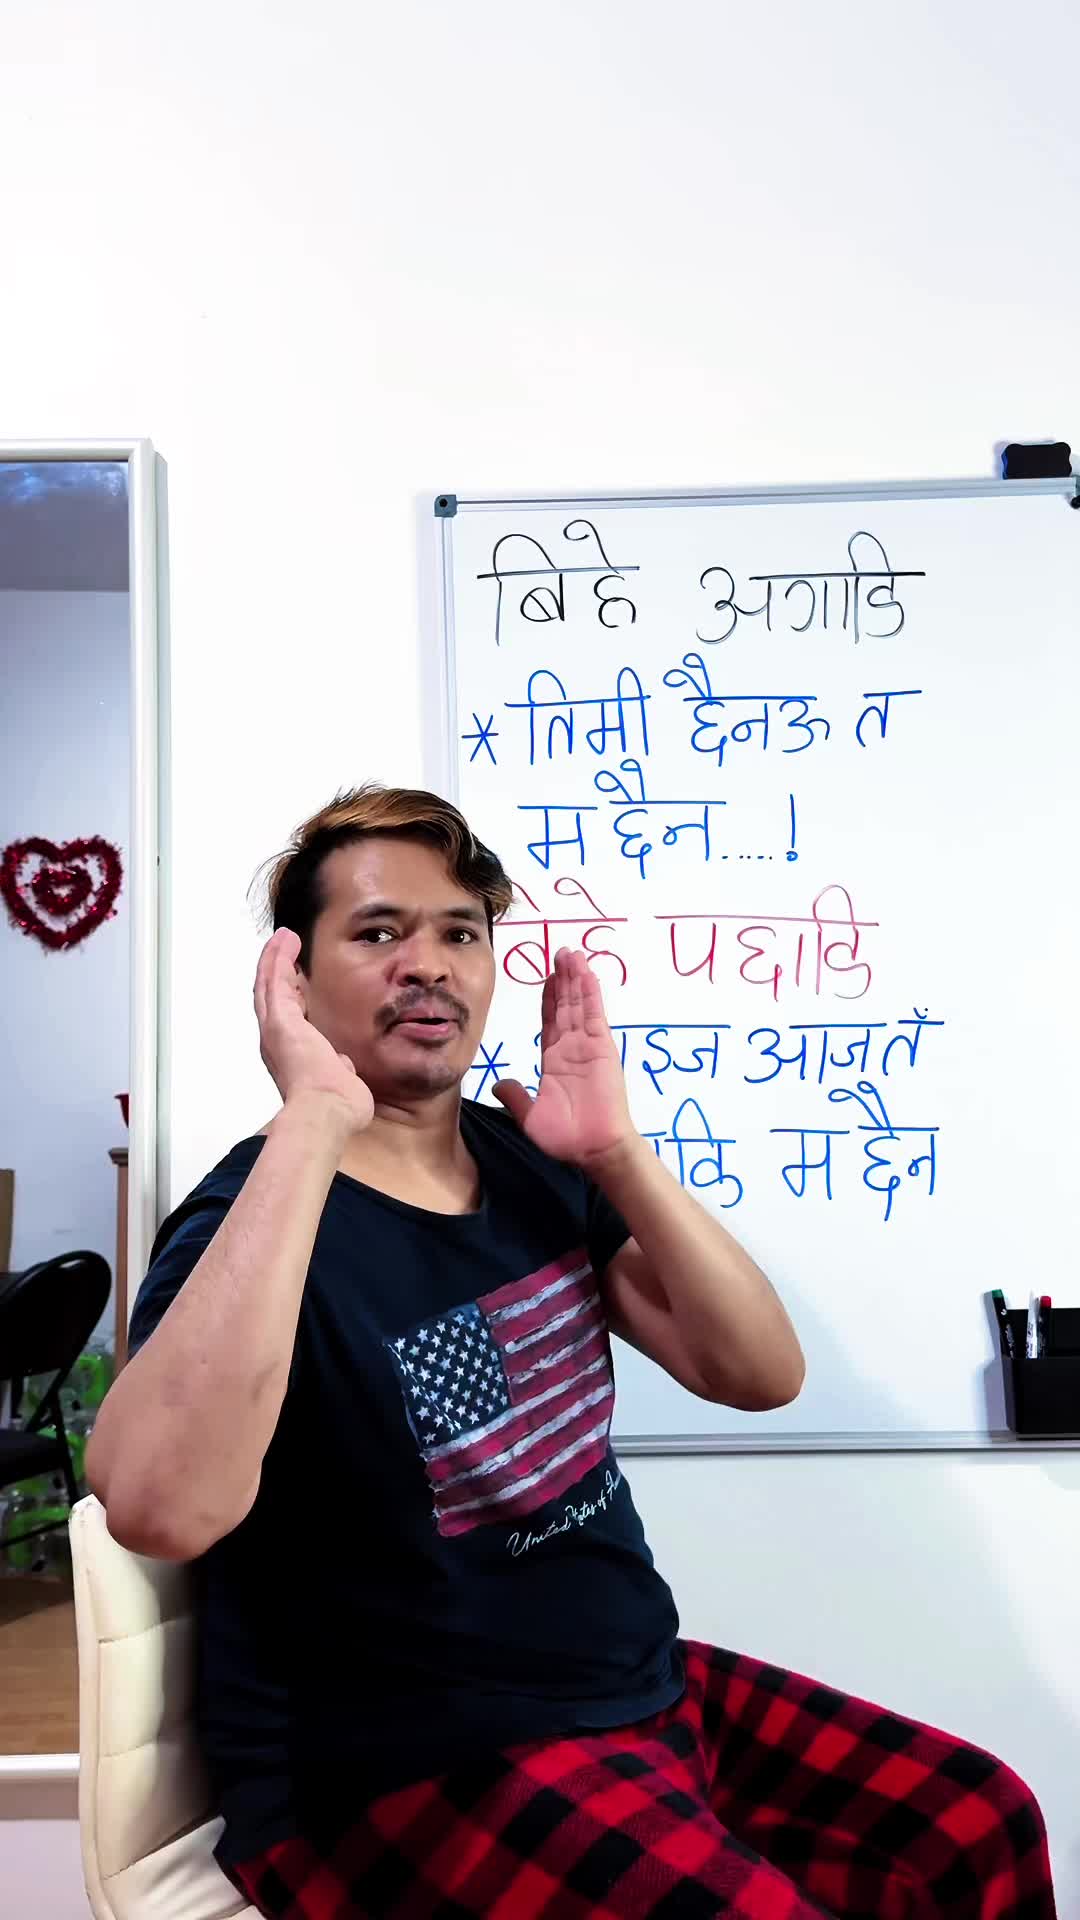 बिहे अगाडि
* तिमी छैनऊ त
म छैन.....!
बिहे पछाडि
* इज आजतँ
कि म छैन
United States of